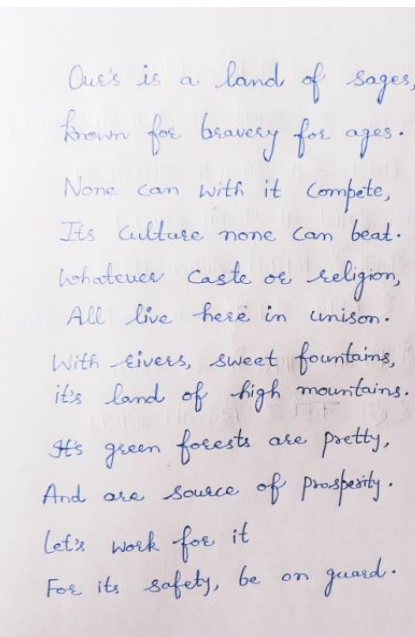 Our's is a land of sages,
known for bravery for ages.
None can with it compete,
Its culture none can beat.
Whatever caste or religion,
All live here in unison.
With rivers, sweet fountains,
it's land of high mountains.
It's green forests are pretty,
And are source of prosperity.
Let's work for it
For its safety, be on guard.